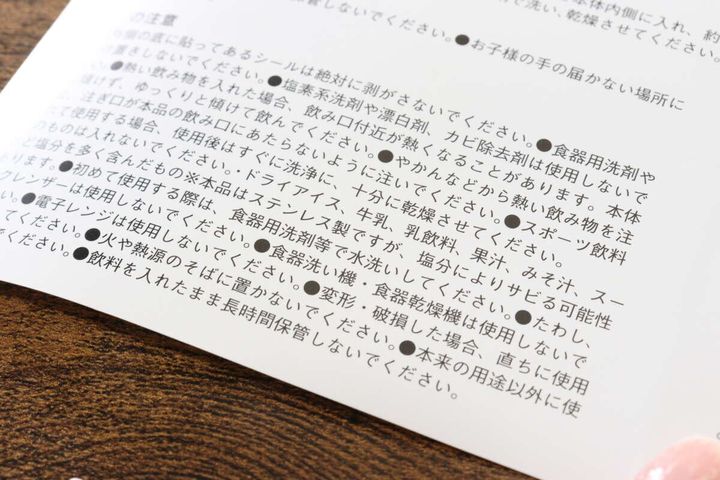 本体内側に入れ、約
保管しないでください。
で洗い、乾燥させてください。
●お子様の手の届かない場所に
の注意
の底に貼ってあるシールは絶対に剥がさないでください。●食器用洗剤や
しないでください。●塩素系洗剤や漂白剤、カビ除去剤は使用しないで
●熱い飲み物を入れた場合、飲み口付近が熱くなることがあります。本体
けず、ゆっくりと傾けて飲んでください。●やかんなどから熱い飲み物を注
注ぎ口が本品の飲み口にあたらないように注いでください。●スポーツ飲料
て使用する場合、使用後はすぐに洗浄し、十分に乾燥させてください。
のものは入れないでください。・ドライアイス、牛乳、乳飲料、果汁、みそ汁、スー
塩分を多く含んだもの※本品はステンレス製ですが、塩分によりサビる可能性
ります。●初めて使用する際は、食器用洗剤等で水洗いしてください。●たわし、
クレンザーは使用しないでください。●食器洗い機・食器乾燥機は使用しないで
い。●電子レンジは使用しないでください。●変形・破損した場合、直ちに使用
てください。●火や熱源のそばに置かないでください。●本来の用途以外に使
でください。●飲料を入れたまま長時間保管しないでください。